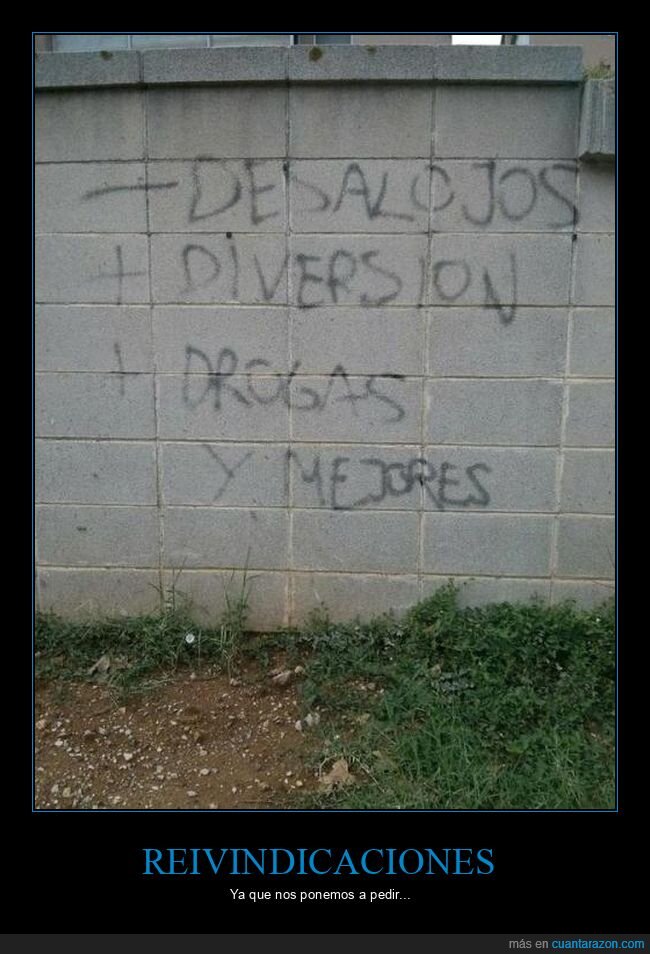 - DESALOJOS
+ DIVERSION
+ DROGAS
Y MEJORES
REIVINDICACIONES
Ya que nos ponemos a pedir...
más en cuantarazon.com